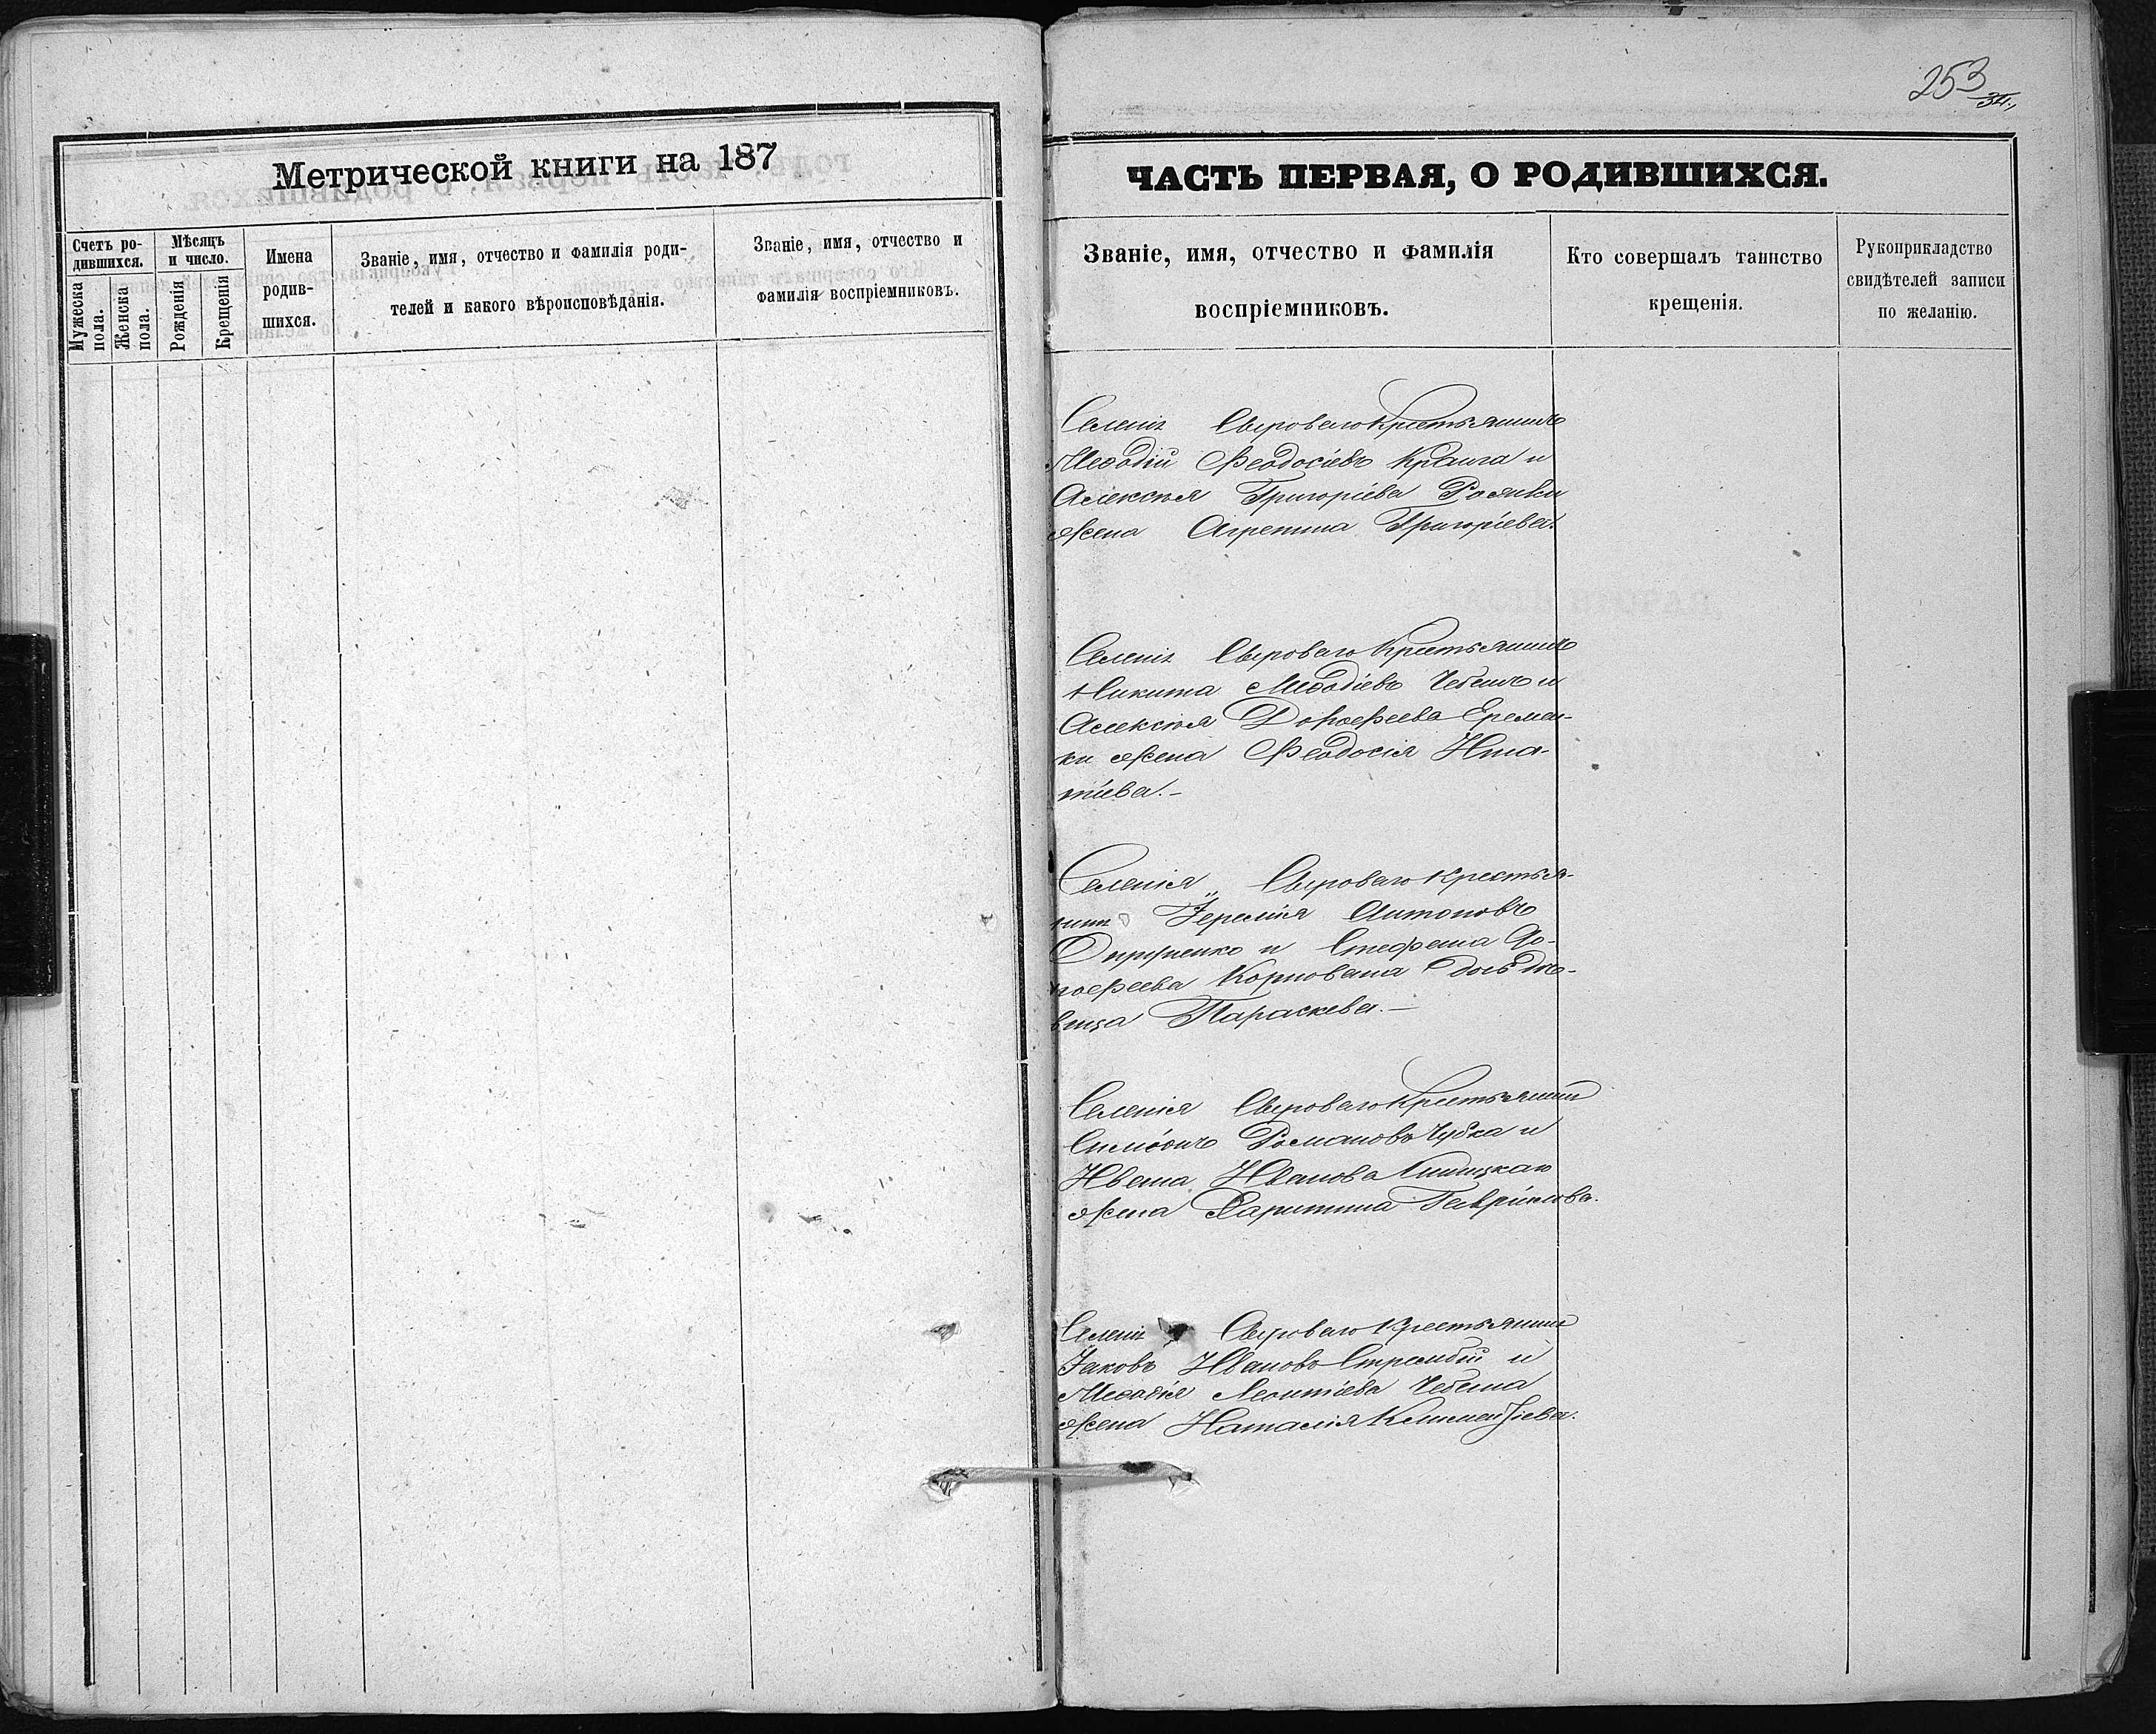 Метрической книги на 187
Счетъ ро-
дившихся.
Мужеска
пола.
Женска
пола.
Мѣсяцъ
и число.
Рожденія
Крещенія
Имена
родив-
шихся.
Званіе, имя, отчество и фамилія роди-
телей и какого вѣроисповѣданія.
Званіе, имя, отчество и
фамилія воспріемниковъ.
253
ЧАСТЬ ПЕРВАЯ, О РОДИВШИХСЯ.
Званіе, имя, отчество и фамилія
воспріемниковъ.
Кто совершалъ таинство
крещенія.
Рукоприкладство
свидѣтелей записи
по желанію.
Селенія Сыроваго Крестьянинъ
Меѳодій Феодосіевъ и
Алексѣя Григоріева
жена Агрепина Григоріева.
Селенія Сыроваго Крестьянинъ
Никита Меѳодіевъ Чебанъ и
Алексѣя Дороѳеева Еремей-
ки жена Феодосія Игна-
тіева.-
Селенія Сыроваго Крестья-
нинъ Іеремія Антоновъ
и Стефана До-
роѳеева Корнована дочь дѣ-
вица Параскева.-
Селенія Сыроваго Крестьянинъ
Симеонъ Романовъ Чубка и
Ивана Иванова
жена Харитина Гаврилова.
Селенія Сыроваго Крестьянинъ
Іаковъ Ивановъ и
Меѳодія Леонтіева Чебана
жена Наталія Климентіева.